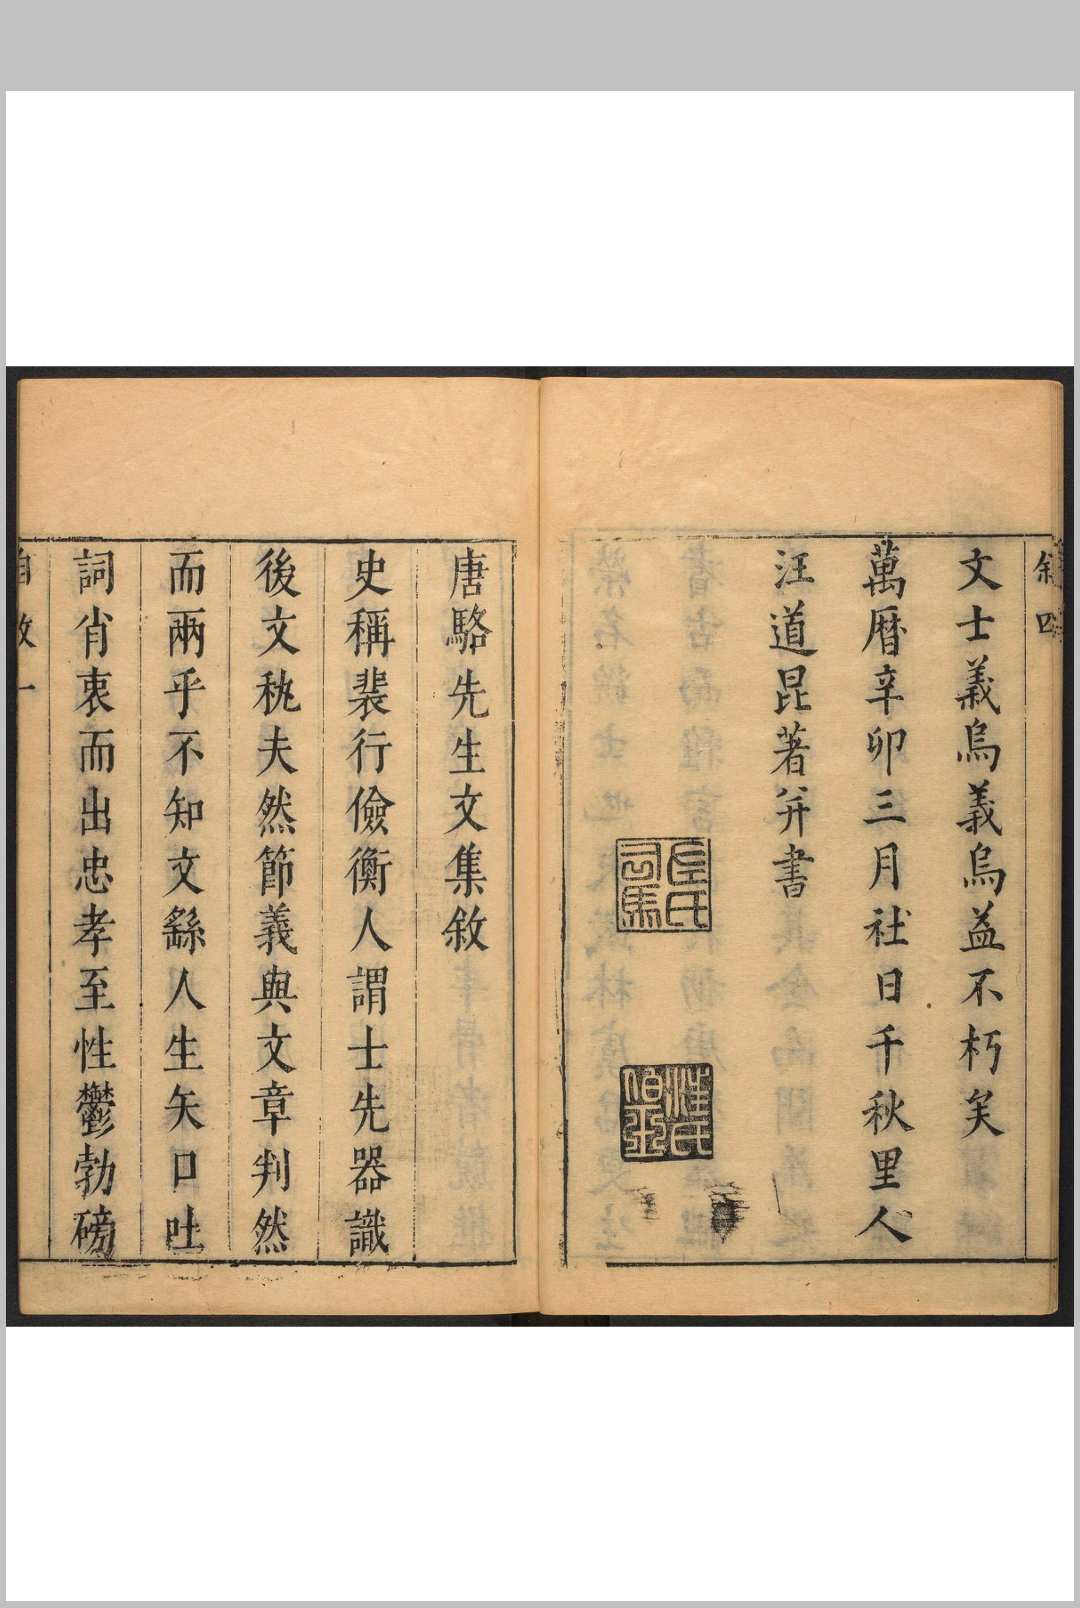 叙四
文士義烏義烏益不朽矣
萬曆辛卯三月社日千秋里人
汪道昆著并書
司馬
汪氏
伯玉
唐駱先生文集敘
史稱裴行儉衡人謂士先器識
後文秇夫然節義與文章判然
而兩乎不知文繇人生矢口吐
詞肖衷而出忠孝至性鬱勃磅
自敘一